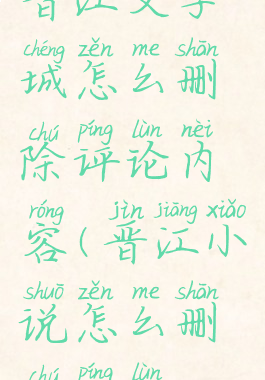 晋江文学
chéng zěn me shān
城怎么删
chú píng lùn nèi
除评论内
róng jìn jiāng xiǎo
容(晋江小
shuō zěn me shān
说怎么删
chú píng lùn